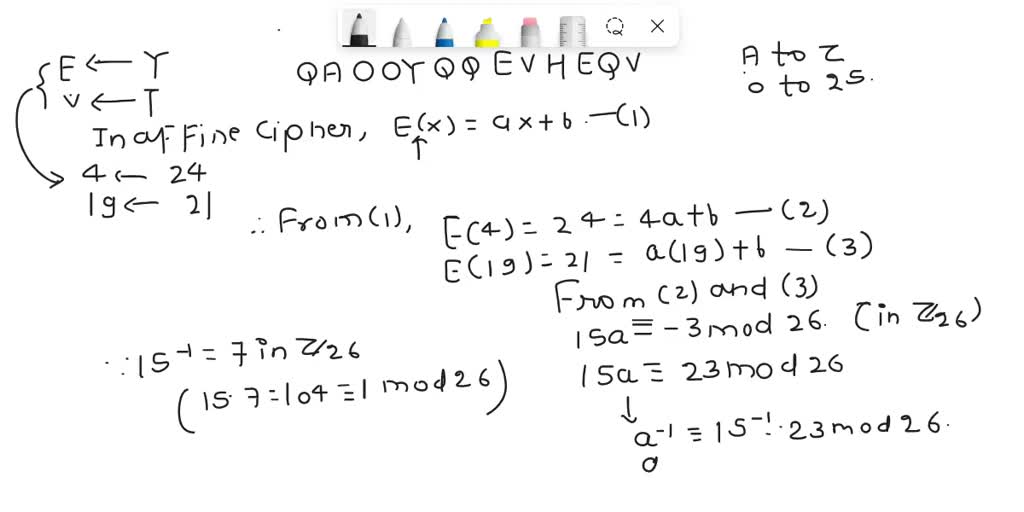 E ← Y
V ← T
QAOOYQQEVHEQV
A to Z
0 to 25.
In affine cipher, E(x) = ax+b — (1)
4 ← 24
19 ← 21
∴ From (1), E(4) = 24 = 4a+b — (2)
E(19) = 21 = a(19)+b — (3)
From (2) and (3)
15a ≡ -3 mod 26. (in Z26)
15a ≡ 23 mod 26
∵ 15⁻¹ = 7 in Z/26
(15·7 = 104 ≡ 1 mod 26)
a⁻¹ ≡ 15⁻¹·23 mod 26.
a